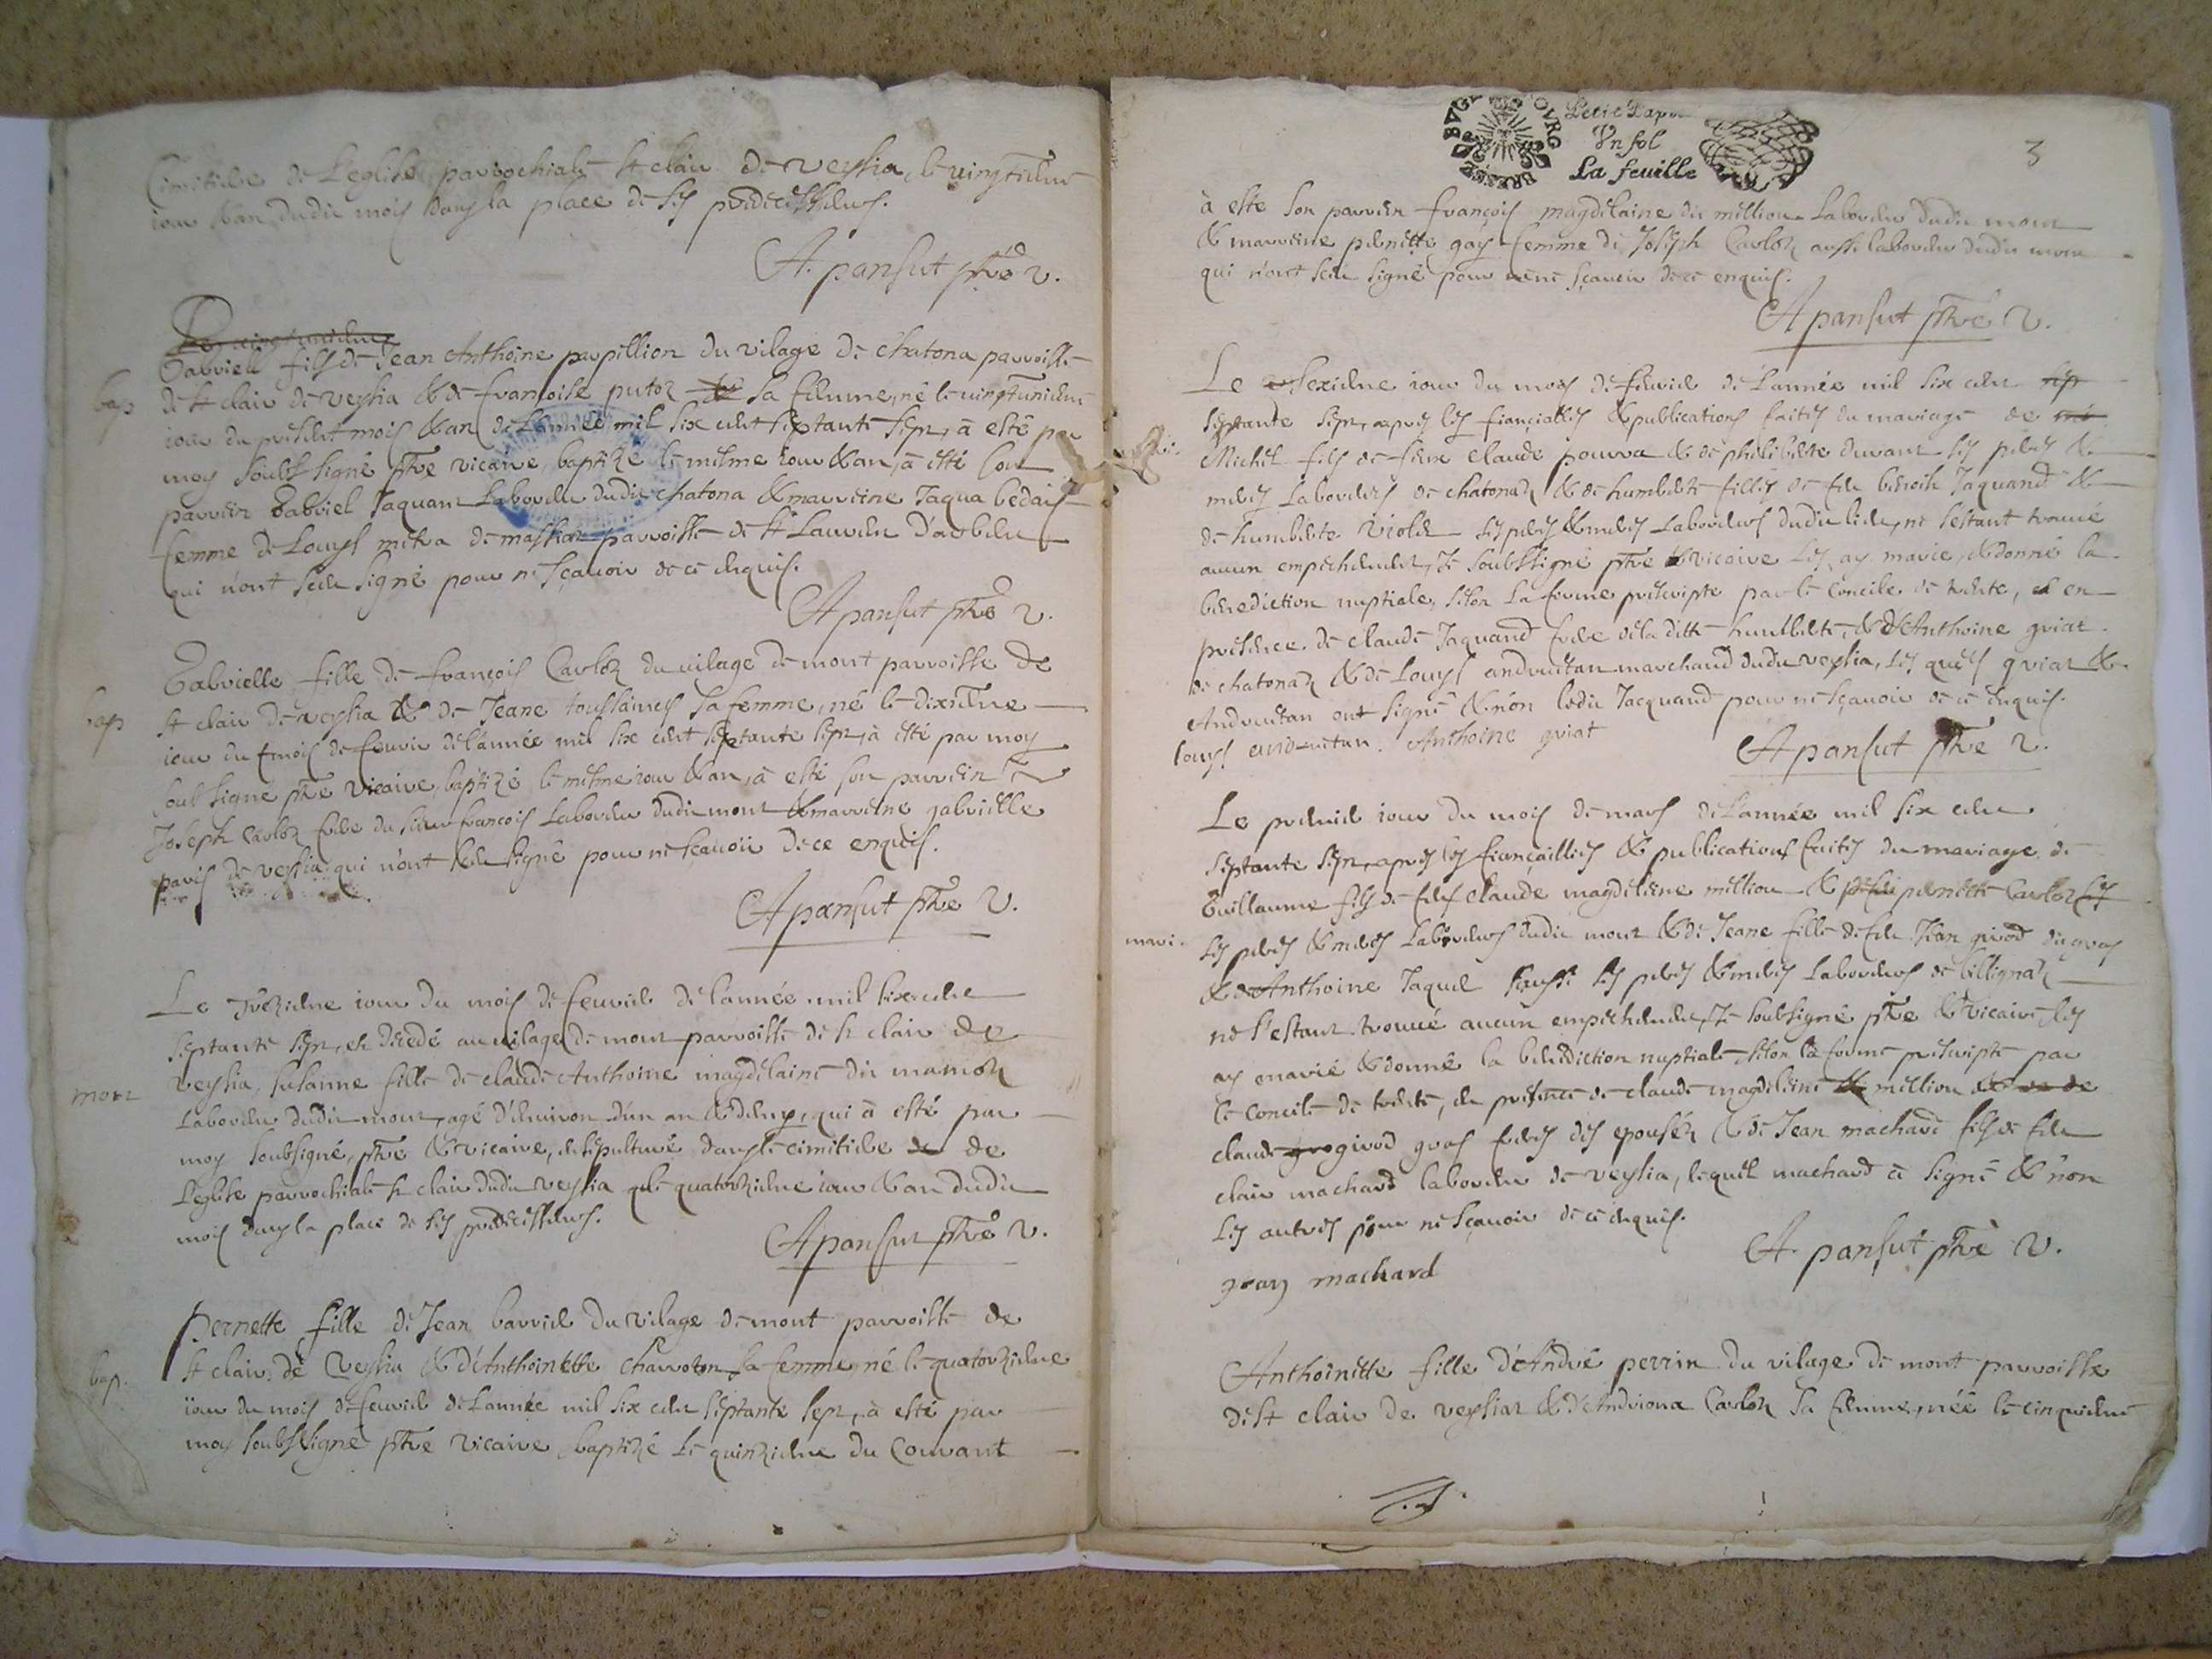 Cimitiere de Leglise parrochiale st clair de veysia, le vingtieme
iour & an dudit mois dans la place de ses predecesseurs.
A. pansut ptre v.
Gabriell fils de Jean Anthoine papillion du vilage de chatona parroisse
bap
de st clair de veysia & de francoise putoz sa femme, né le vingtunieme
iour du present mois & an de Lannée mil six cent septante sept, à esté par
moy soubsigné ptre vicaire, baptizé le mesme iour & an, à esté son
parrein Gabriel Jaquant Laboreur dudit chatona & marreine Jaqua bedais
femme de Louys metra de parroisse de st Laurent
qui n'ont sceu signé pour ne sçauoir de ce enquis.
A pansut ptre v.
Gabrielle fille de françois Carloz du uilage de mont parroisse de
bap
st clair de veysia & de Jeane toussaines sa femme, né le dixieme
iour du mois de feurier de l'année mil six cent septante sept, à esté par moy
soubsigné ptre vicaire, baptizé le mesme iour & an, à esté son parrein
Joseph carloz frere du sieur francois Laboreur dudit mont & marreine gabrielle
paris de veysia qui n'ont sceu signé pour ne sceauoir de ce enquis.
A pansut ptre v.
Le Trezieme iour du mois de feurier de l'année mil six cent
septante sept, est decedé au uilage de mont parroisse de st clair de
mort
veysia, susanne fille de claude Anthoine magdelaine dit mamoz
Laboreur dudit mont, agé d'enuiron d'un an & demy, qui à esté par
moy soubsigné, ptre & vicaire, ensepulturé dans le cimitiere de
Leglise parrochiale st clair dudit veysia le quatorzieme iour & an dudit
mois dans la place de ses predecesseurs.
A pansut ptre v.
Pernette fille de Jean barriel du vilage de mont parroisse de
bap.
st clair de veysia & d'Anthoinette charroton sa femme, né le quatorzieme
iour du mois de feurier de Lannée mil six cent septante sept, à esté par
moy soubssigné ptre vicaire baptizé le quinzieme du Courant
BUGEY BOURG BRESSE
Petit Papier
Un sol
La feuille
3
à esté son parrein françois magdelaine dit million Laboreur dudit mont
& marreine pernette gay femme de Joseph Carloz aussi laboreur dudit mont
qui n'ont sceu signé pour ne sçauoir de ce enquis.
A pansut ptre v.
Le sexieme iour du mois de feurier de L'année mil six cent
septante sept, apres les fiançailles & publications faites du mariage de
Michel fils de feu claude pourra & de philiberte durant ses peres &
meres Laboreurs de chatonaz & de humberte fille de feu benoit Jaquand &
de humberte violet ses peres & meres Laboreurs dudit lieu, ne s'estant trouué
aucun empechement, Je soubssigné ptre & vicaire les ay marié, & donné la
benediction nuptiale, selon la forme prescripte par le concile de trente, en
presence de claude Jaquand frere de la ditte humberte, & d'Anthoine guiat
de chatonaz & de Louys andruetan marchand dudit veysia, les quels guiat &
Andruetan ont signé & non ledit Jacquand pour ne sçauoir de ce enquis.
louys andruetan. Anthoine guiat
A pansut ptre v.
Le premier iour du mois de mars de L'année mil six cent
septante sept, apres les fiançailles & publications faites du mariage de
Guillaume fils de feu claude magdeleine million & pernette Carloz
mari.
ses peres & meres Laboreurs dudit mont & de Jeane fille de feu Jean girod dit gras
& d'Anthoine Jaquel aussi ses peres & meres Laboreurs de billignaz
ne s'estant trouué aucun empechement, Je soubsigné ptre & vicaire les
ay marié & donné la benediction nuptiale selon la forme prescripte par
le concile de trente, en presence de claude magdeleine million
claude girod gras freres des epousez & de Jean machard fils de feu
clair machard laboreur de veysia, lequel machard à signé & non
les autres pour ne sçauoir de ce enquis.
A. pansut ptre v.
jean machard
Anthoinette fille d'André perrin du vilage de mont parroisse
de st clair de veysiat & d'Andriona Carloz sa femme, née le cinquieme